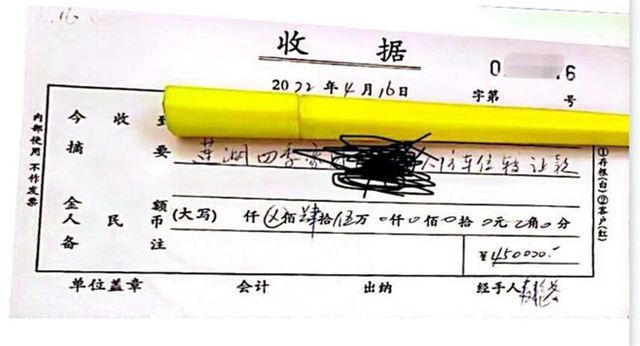 16
收 据
0 6
2022 年 4 月 16 日 字第 号
今 收 到
摘 要 莲湖四季 人防车位转让款
金 额
人 民 币 (大写) 仟 ⊗ 佰 肆 拾 伍 万 0 仟 0 佰 0 拾 0 元 0 角 0 分
备 注
¥450000.-
单位盖章 会计 出纳 经手人
内部使用 不作发票
①存根(白) ②客户(红)